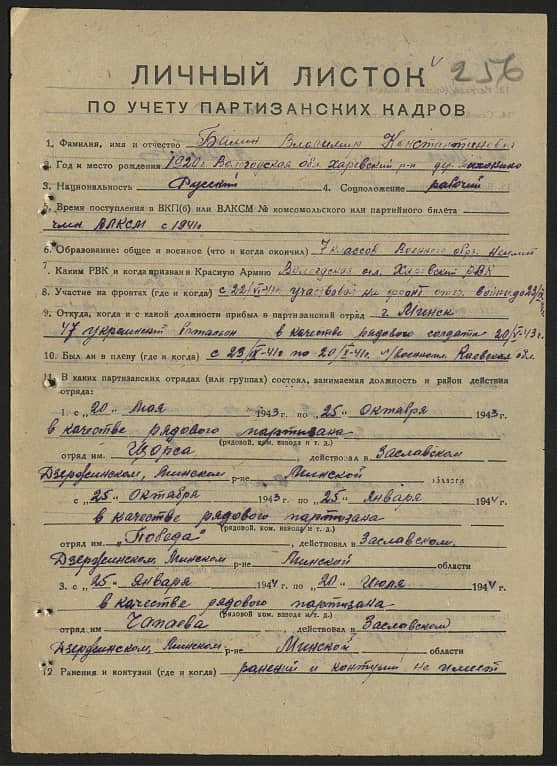 256
ЛИЧНЫЙ ЛИСТОК
ПО УЧЕТУ ПАРТИЗАНСКИХ КАДРОВ
1. Фамилия, имя и отчество Владимир Константинович
2. Год и место рождения 1920 г. Вологодская обл. Харовский р-н дер.
3. Национальность Русский 4. Соцположение рабочий
5. Время поступления в ВКП(б) или ВЛКСМ № комсомольского или партийного билета
член ВЛКСМ с 1941г
6. Образование: общее и военное (что и когда окончил) 7 классов
7. Каким РВК и когда призван в Красную Армию Вологодская обл. Харовский РВК
8. Участие на фронтах (где и когда) с 22/VI-41г. участвовал на фронт. отеч. войны до 23/IX
9. Откуда, когда и с какой должности прибыл в партизанский отряд г. Минск
47 украинский батальон в качестве рядового солдата 20/V-43г.
10. Был ли в плену (где и когда) с 23/IX-41г по 20/X-41г. Киевская обл.
11. В каких партизанских отрядах (или группах) состоял, занимаемая должность и район действия
отряда:
1. с „20“ Мая 1943 г. по „25“ Октября 1943 г.
в качестве рядового партизана
(рядовой, ком. взвода и т. д.)
отряд им. Щорса, действовал в Заславском
Дзержинском, Минском р-не Минской области
с „25“ Октября 1943 г. по „25“ Января 1944 г.
в качестве рядового партизана
(рядовой, ком. взвода и т. д.)
отряд им „Победа“, действовал в Заславском,
Дзержинском, Минском р-не Минской области
3. с „25“ Января 1944 г. по „20“ Июля 1944 г.
в качестве рядового партизана
(рядовой ком. взвода и т. д.)
отряд им Чапаева, действовал в Заславском
Дзержинском, Минском р-не Минской области
12. Ранения и контузии (где и когда) ранений и контузий не имеет